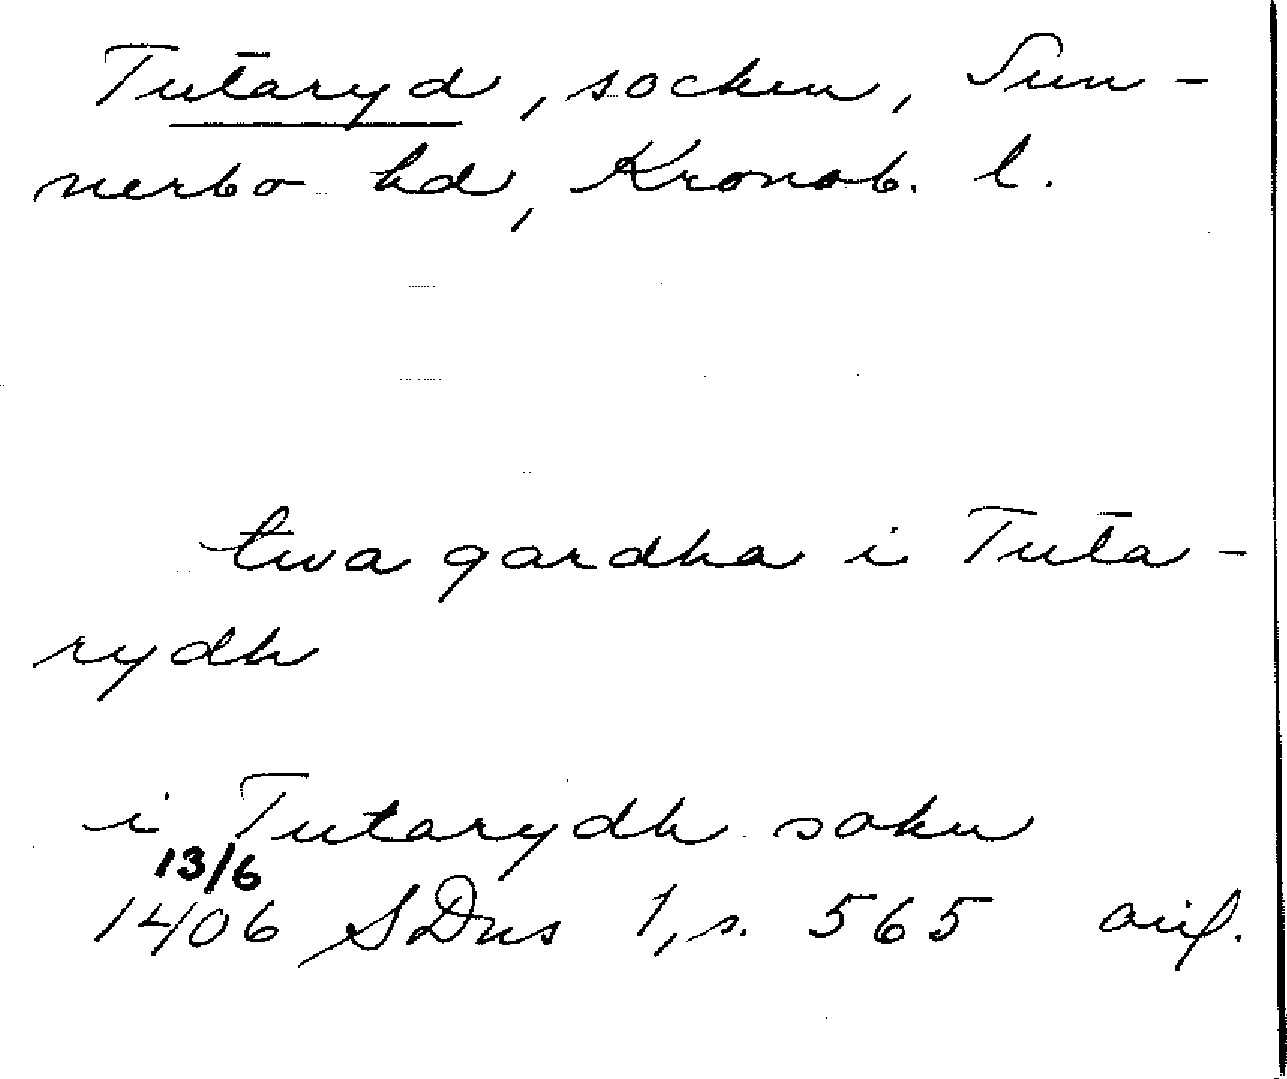 Tutaryd, socken, Sun-
nerbo hd, Kronob. l.
twa gardha i Tuta-
rydh
i Tutarydh sokn
13/6
1406 SDns 1, s. 565 avif.